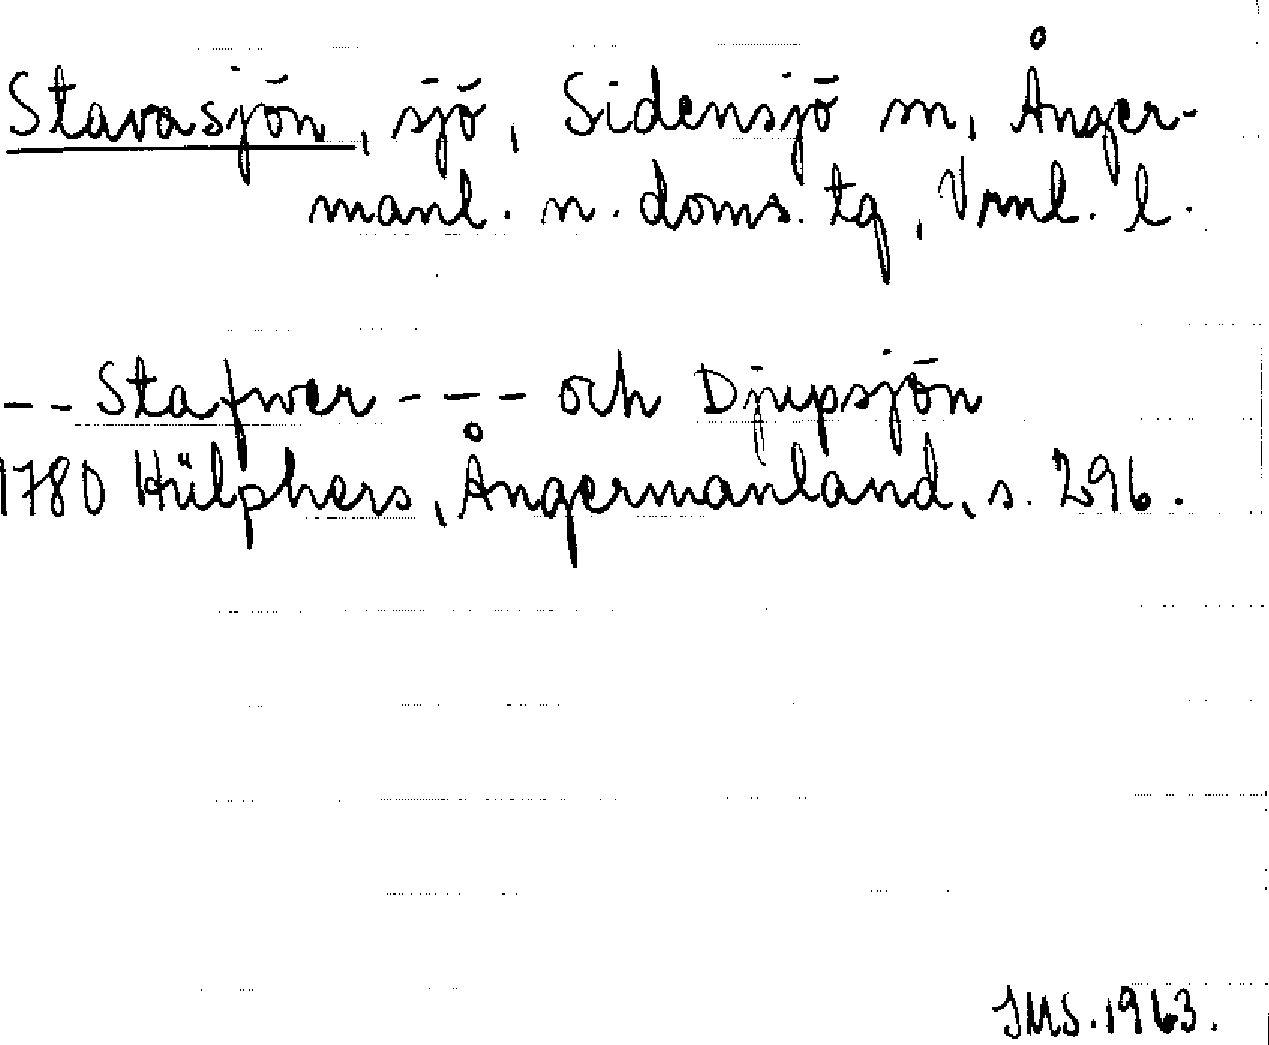 Stavasjön, sjö, Sidensjö sn, Ånger-
manl. n. doms. tg, Vrnl. l.
-- Stafwer --- och Djupsjön
1780 Hülphers, Ångermanland, s. 296.
JMS. 1963.